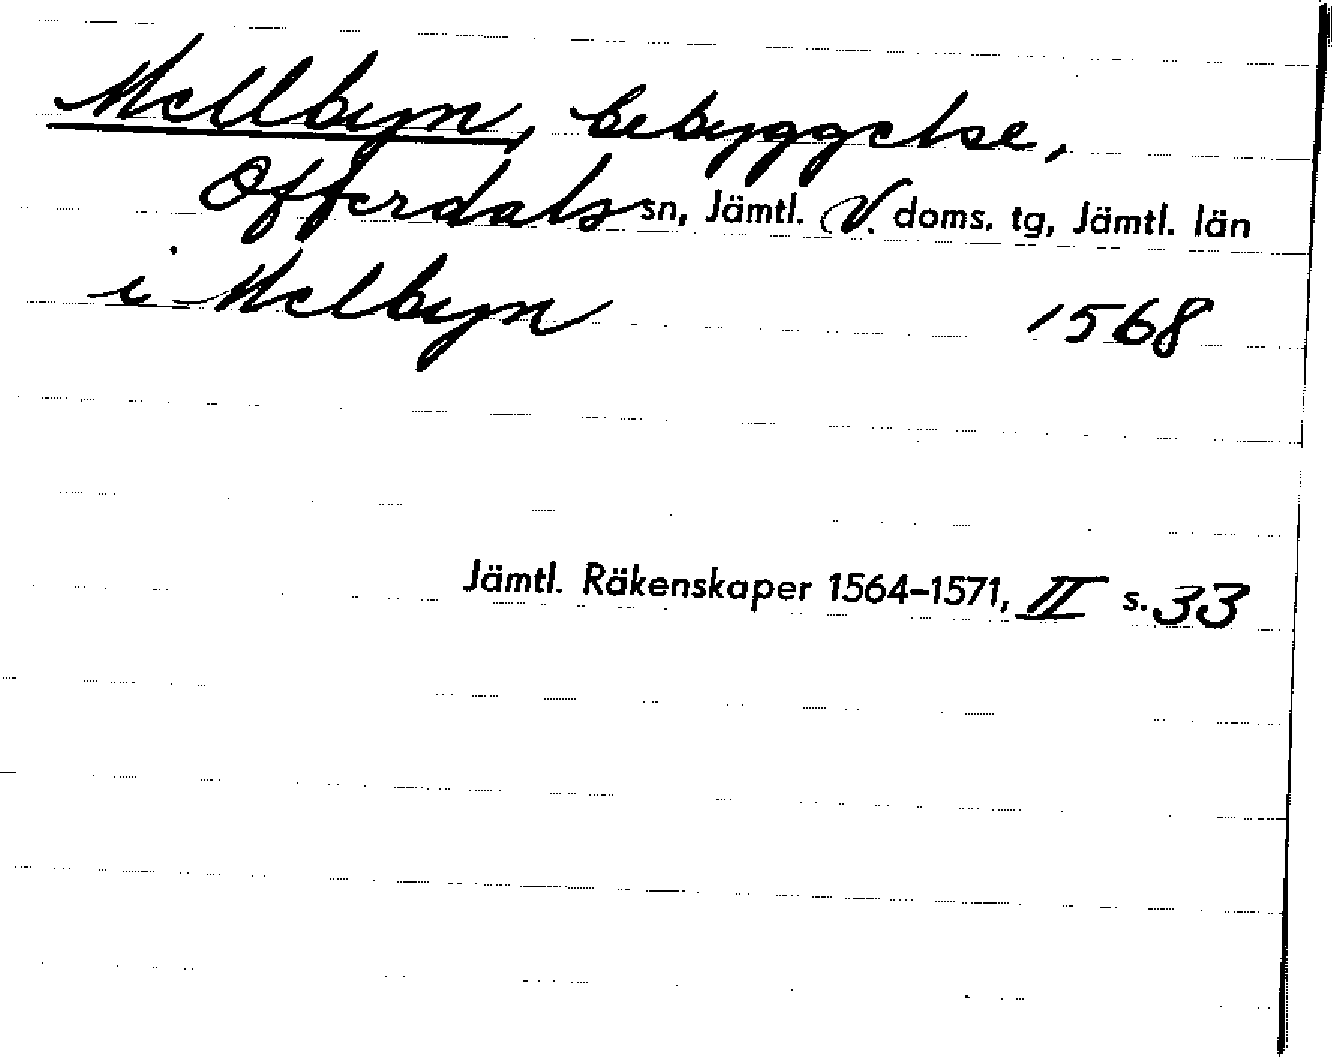 Mellbyn, bebyggelse,
Offerdals sn, Jämtl. V. doms. tg, Jämtl. län
i Melbyn 1568
Jämtl. Räkenskaper 1564-1571, II s. 33